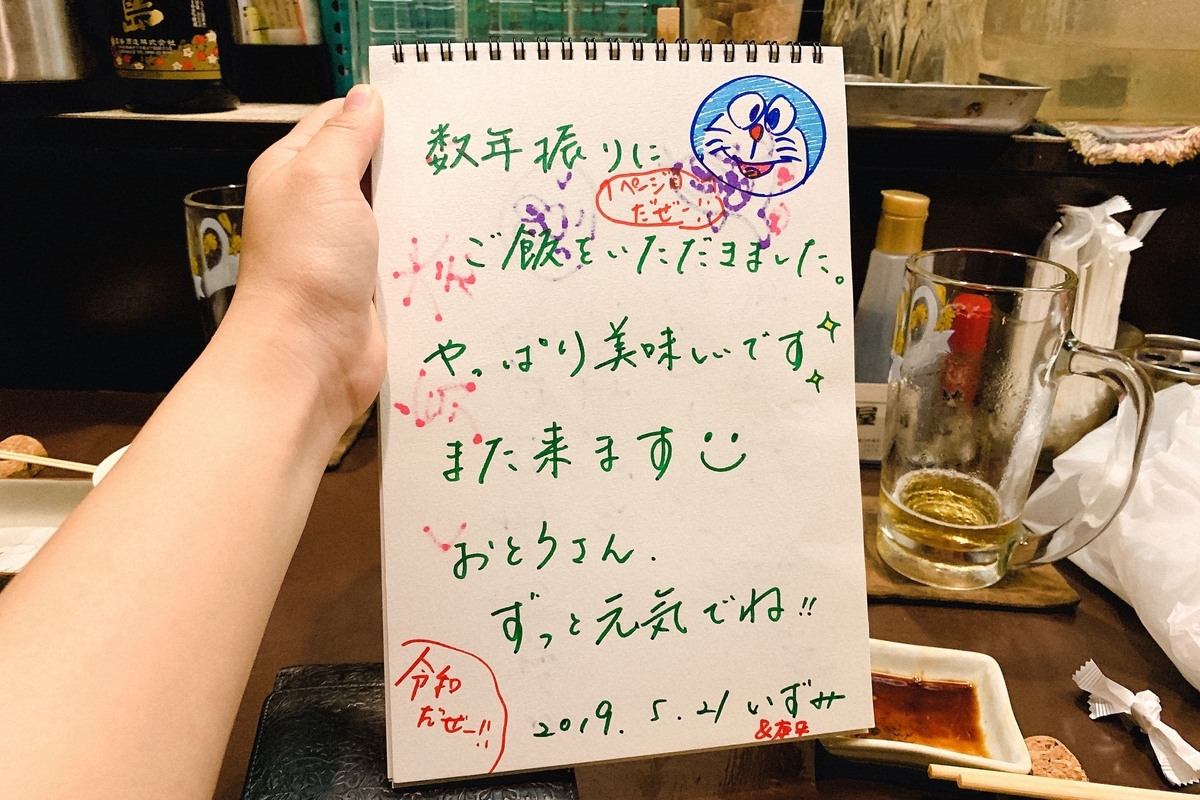 数年振りに
1ページ目
だぜー!!
ご飯をいただきました。
やっぱり美味しいです
また来ます
おとうさん.
ずっと元気でね!!
令和
だぜー!!
2019. 5. 21 いずみ